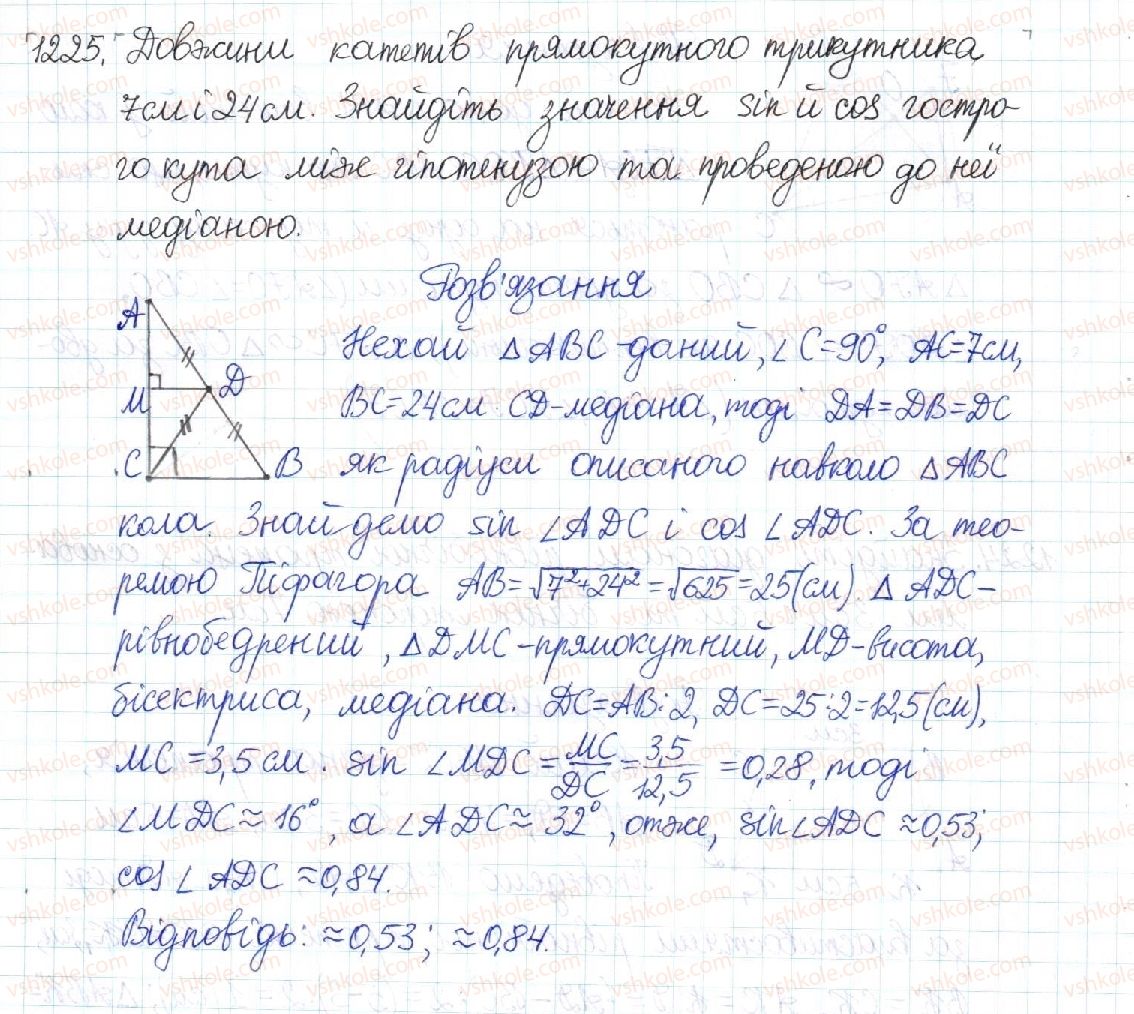 1225. Довжини катетів прямокутного трикутника
7см і 24см. Знайдіть значення sin й cos гостро-
го кута між гіпотенузою та проведеною до неї
медіаною.
Розв'язання
A
M
D
C
B
Нехай △ABC-даний, ∠C=90°, AC=7см,
BC=24см. CD-медіана, тоді DA=DB=DC
як радіуси описаного навколо △ABC
кола. Знайдемо sin ∠ADC і cos ∠ADC. За тео-
ремою Піфагора AB=√7²+24² = √625 = 25(см). △ADC-
рівнобедрений, △DMC-прямокутний, MD-висота,
бісектриса, медіана. DC=AB:2, DC=25:2=12,5(см),
MC=3,5см. sin ∠MDC = MC/DC = 3,5/12,5 = 0,28, тоді
∠MDC≈16°, а ∠ADC≈32°, отже, sin∠ADC≈0,53;
cos∠ADC≈0,84.
Відповідь: ≈0,53; ≈0,84.